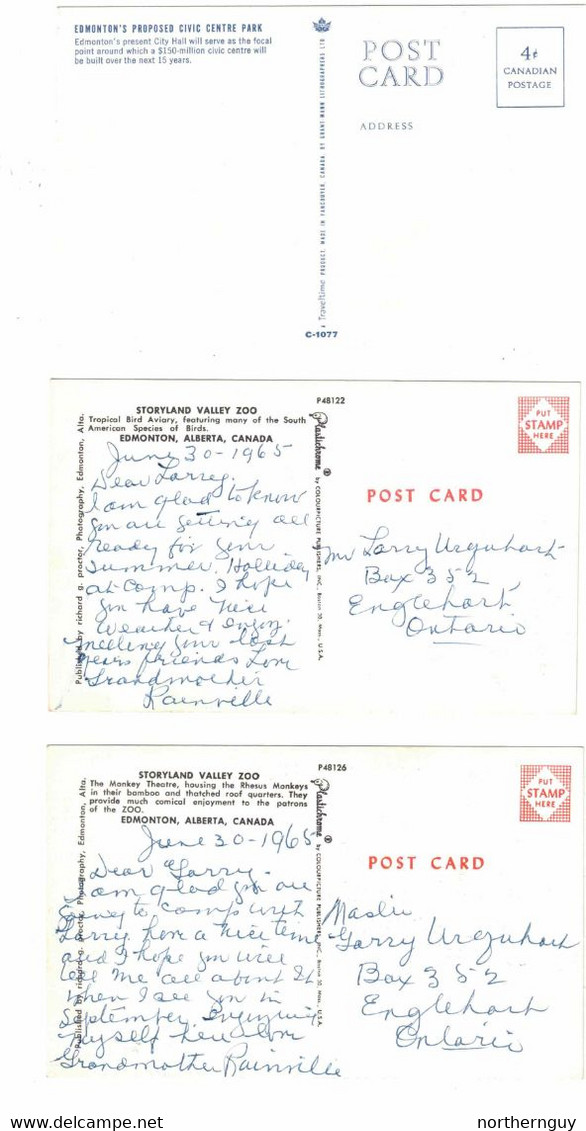 EDMONTON'S PROPOSED CIVIC CENTRE PARK
Edmonton's present City Hall will serve as the focal
point around which a $150-million civic centre will
be built over the next 15 years.
Traveltime PRODUCT. MADE IN VANCOUVER, CANADA BY GRANT-MANN LITHOGRAPHERS LTD.
C-1077
POST
CARD
ADDRESS
4¢
CANADIAN
POSTAGE
STORYLAND VALLEY ZOO
Tropical Bird Aviary, featuring many of the South
American Species of Birds.
EDMONTON, ALBERTA, CANADA
Published by richard g. proctor, Photography, Edmonton, Alta.
June 30-1965
Dear Larrey.
I am glad to know
you are getting all
ready for your
Summer Holliday
at Comp. I hope
you have nice
Weather & enjoy
meeting your last
years friends Love
Grandmother
Rainville
P48122
Plastichrome ® by COLOURPICTURE PUBLISHERS, INC., Boston 30, Mass., U.S.A.
PUT
STAMP
HERE
POST CARD
Mr Larry Urquhart
Box 352
Englehart
Ontario
STORYLAND VALLEY ZOO
The Monkey Theatre, housing the Rhesus Monkeys
in their bamboo and thatched roof quarters. They
provide much comical enjoyment to the patrons
of the ZOO.
EDMONTON, ALBERTA, CANADA
Published by richard g. proctor, Photography, Edmonton, Alta.
June 30-1965
Dear Garry.
I am glad you are
going to comp with
Larry. have a nice time
and I hope you will
tell me all about it
when I see you in
September. Enjoying
myself here Love
Grandmother Rainville
P48126
Plastichrome ® by COLOURPICTURE PUBLISHERS, INC., Boston 30, Mass., U.S.A.
PUT
STAMP
HERE
POST CARD
Master
Garry Urquhart
Box 352
Englehart
Ontario
northernguy